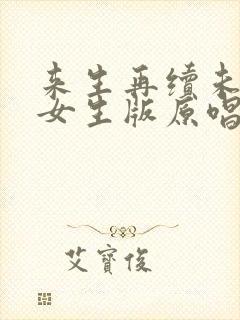 来生再续未
女生版原唱
艾寶俊